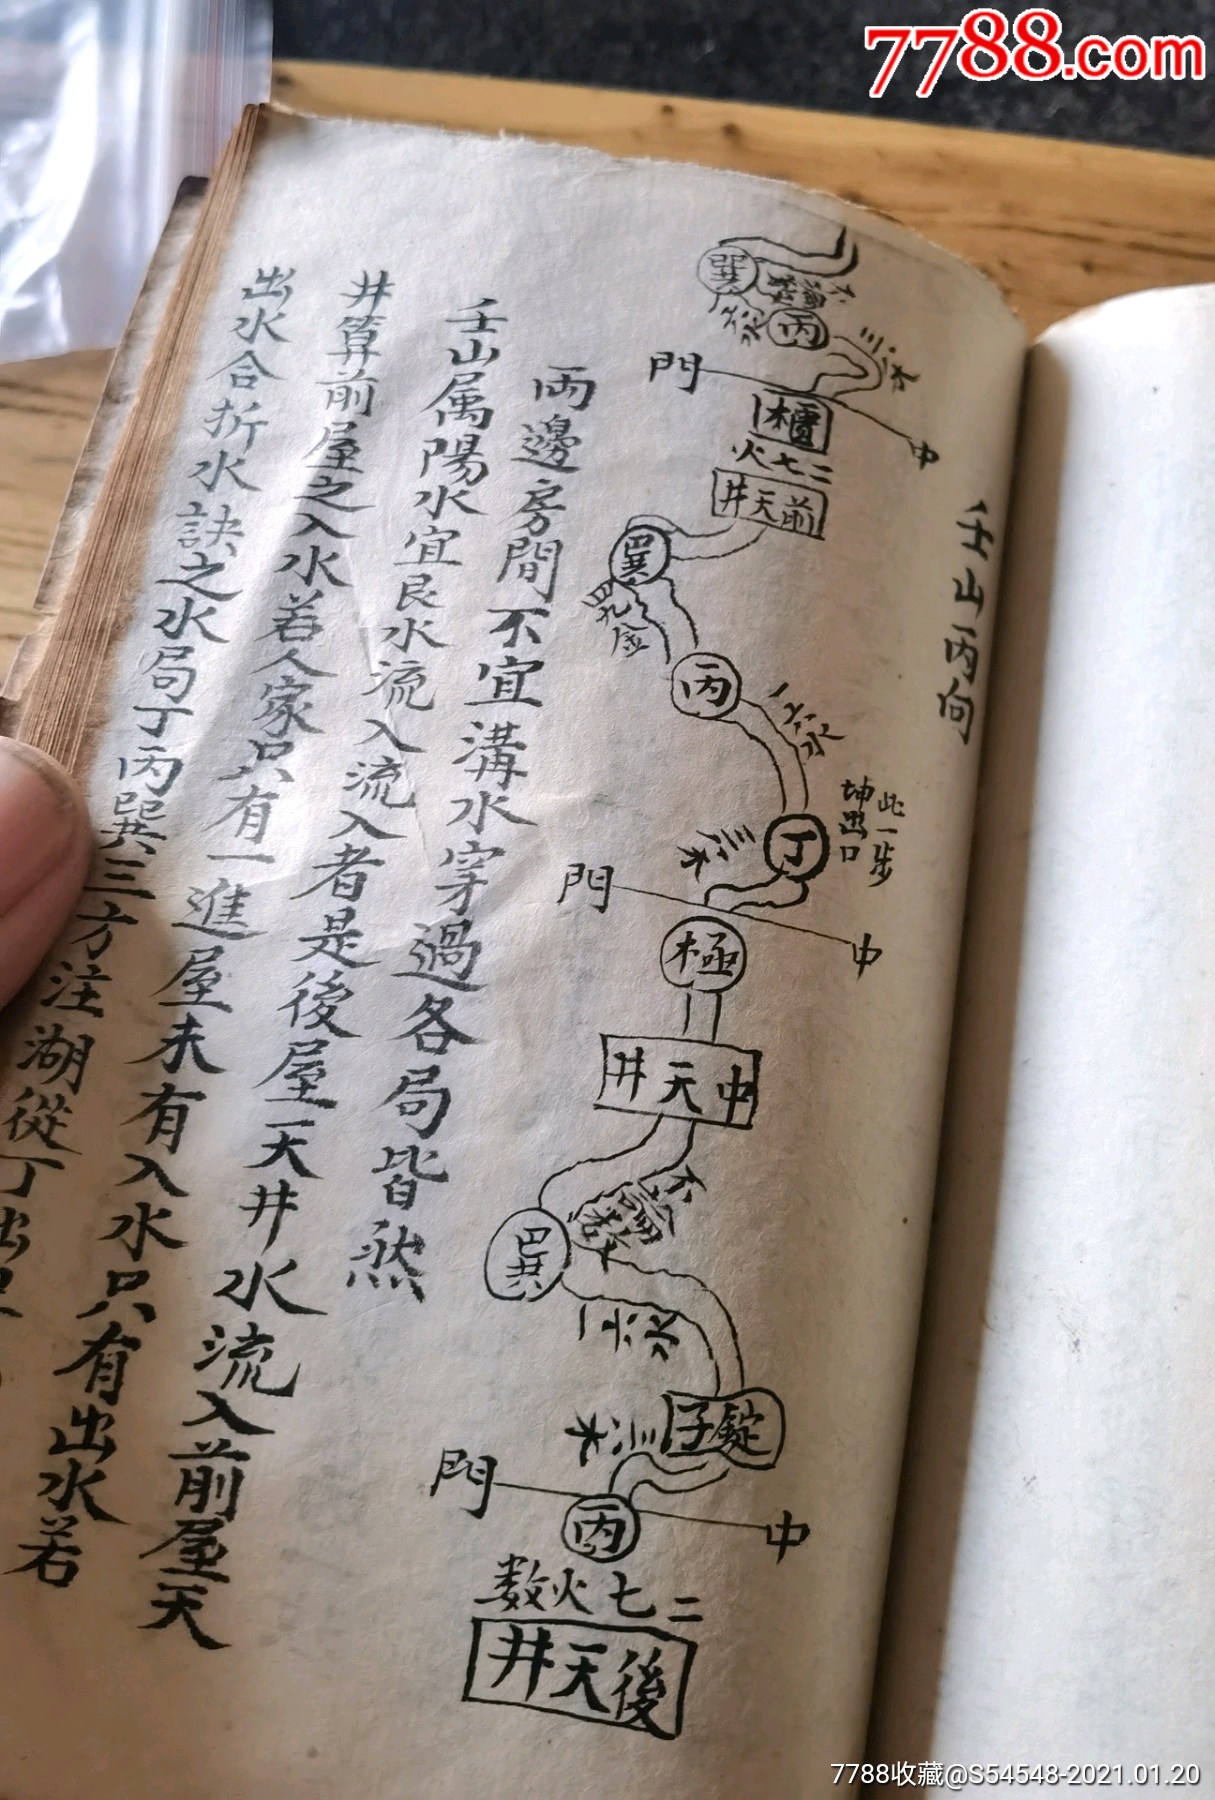 7788.com
壬山丙向
巽
丙
三八木
門
中
櫃
二七火
前天井
巽
四九金
丙
一六水
丁
此一步
坤出口
三八木
門
中
極
中天井
不論数
巽
一六水
錠子
三八木
門
中
丙
二七火数
後天井
兩邊房間不宜溝水穿過各局皆然
壬山属陽水宜艮水流入流入者是後屋天井水流入前屋天
井算前屋之入水若人家只有一進屋未有入水只有出水若
出水合折水訣之水局丁丙巽三方注湖從丁出
7788收藏@S54548-2021.01.20